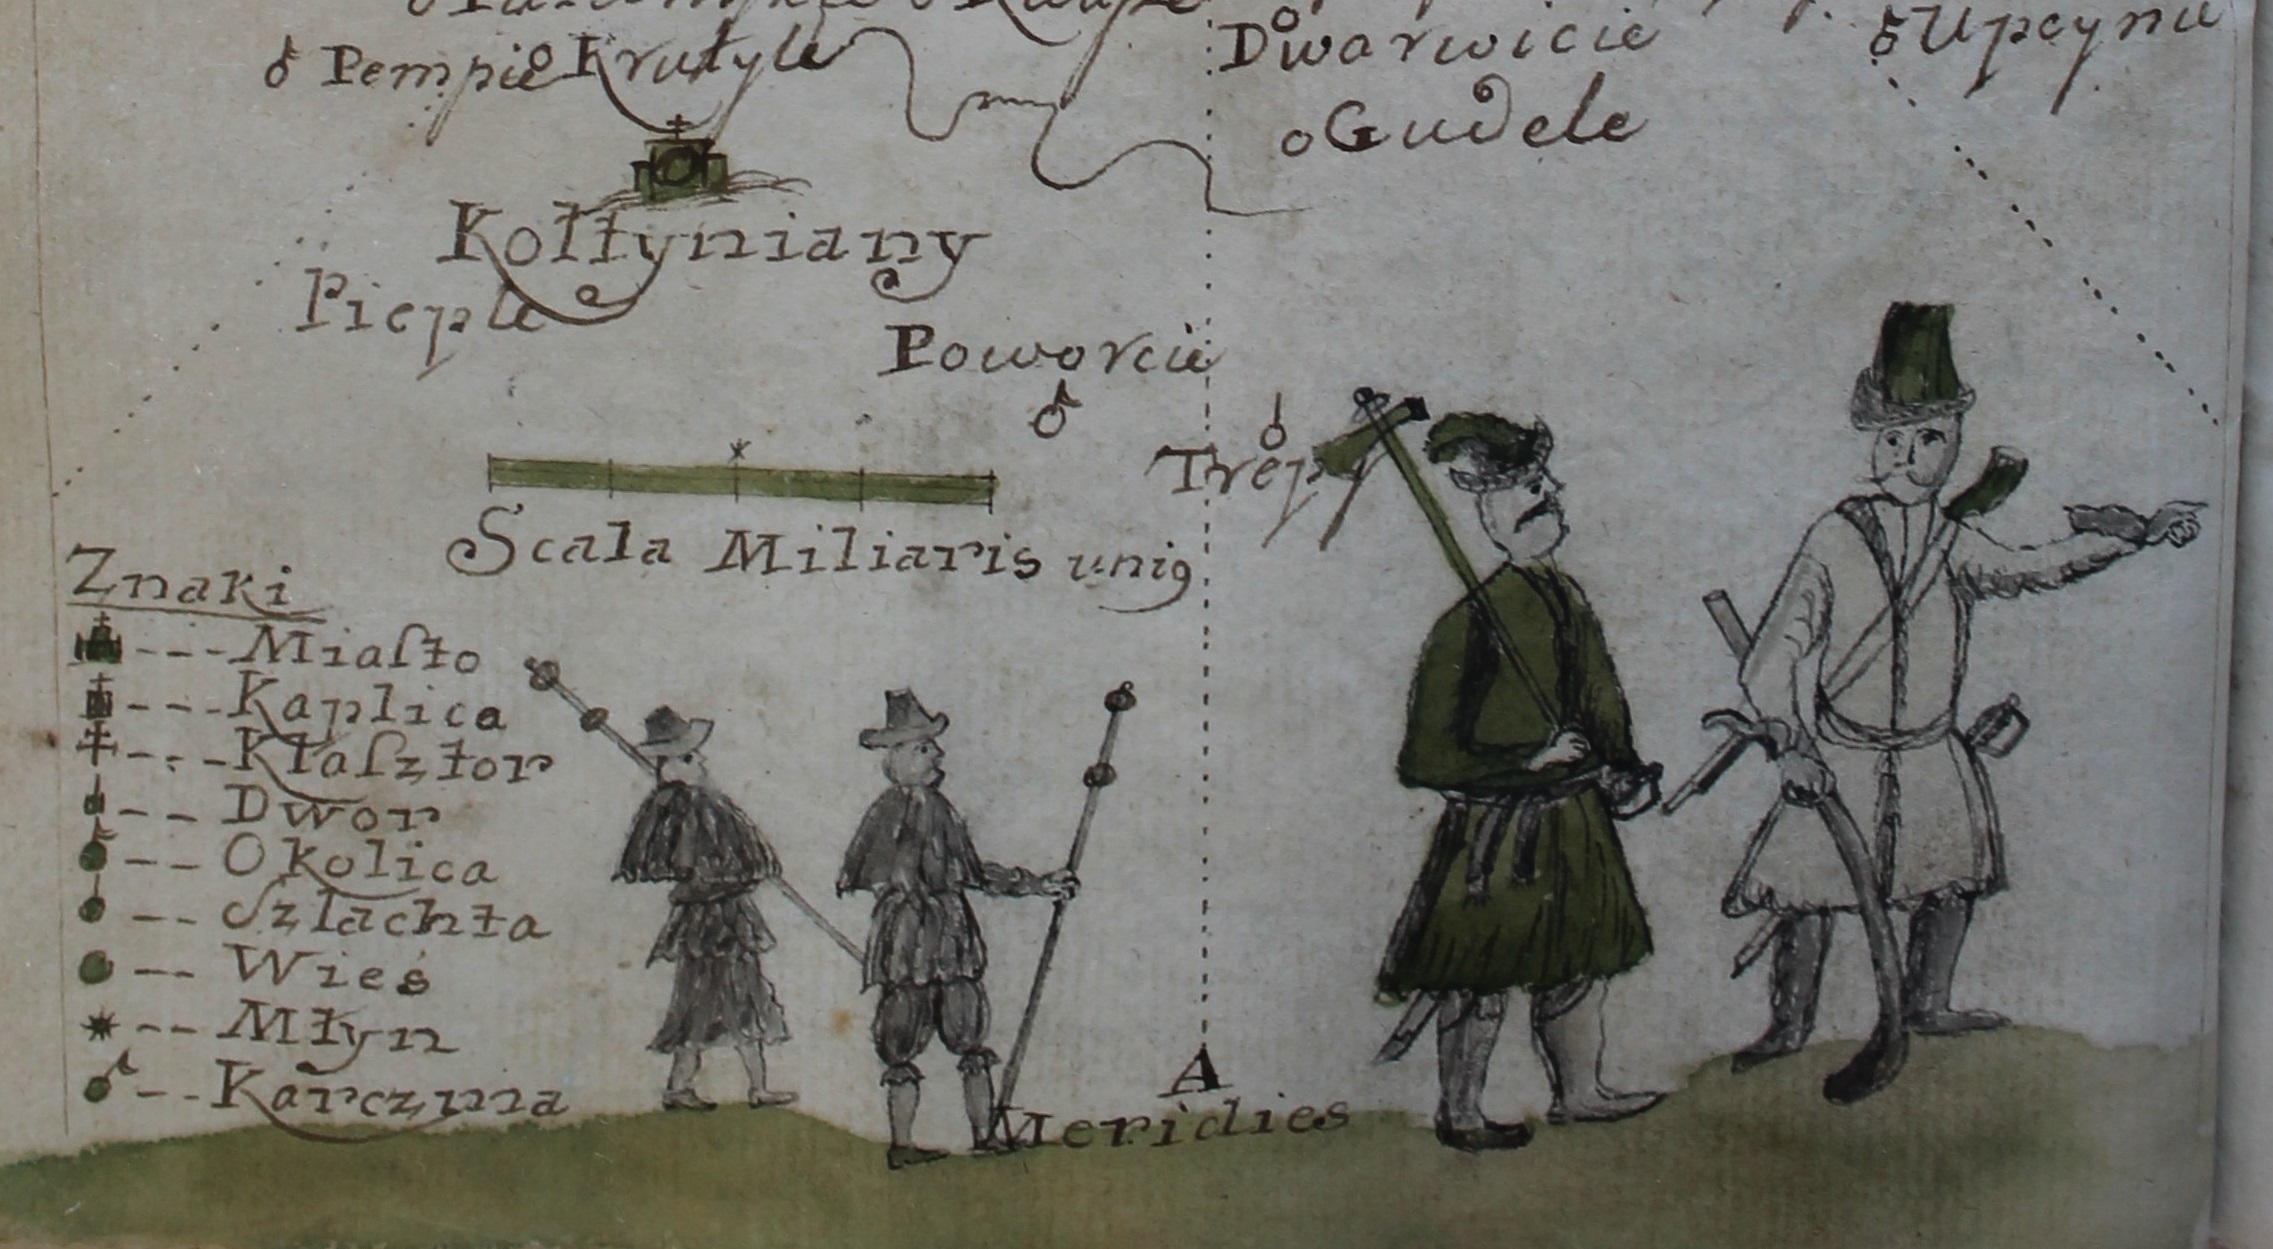 Pempie Krutyle
Dwarwicie
Upcynie
Gudele
Kołtyniany
Pieple
Poworcie
Trep
Scala Miliaris unig
Znaki
Miaſto
Kaplica
Klaſztor
Dwor
Okolica
Szlachta
Wieś
Młyn
Karczma
A
Meridies